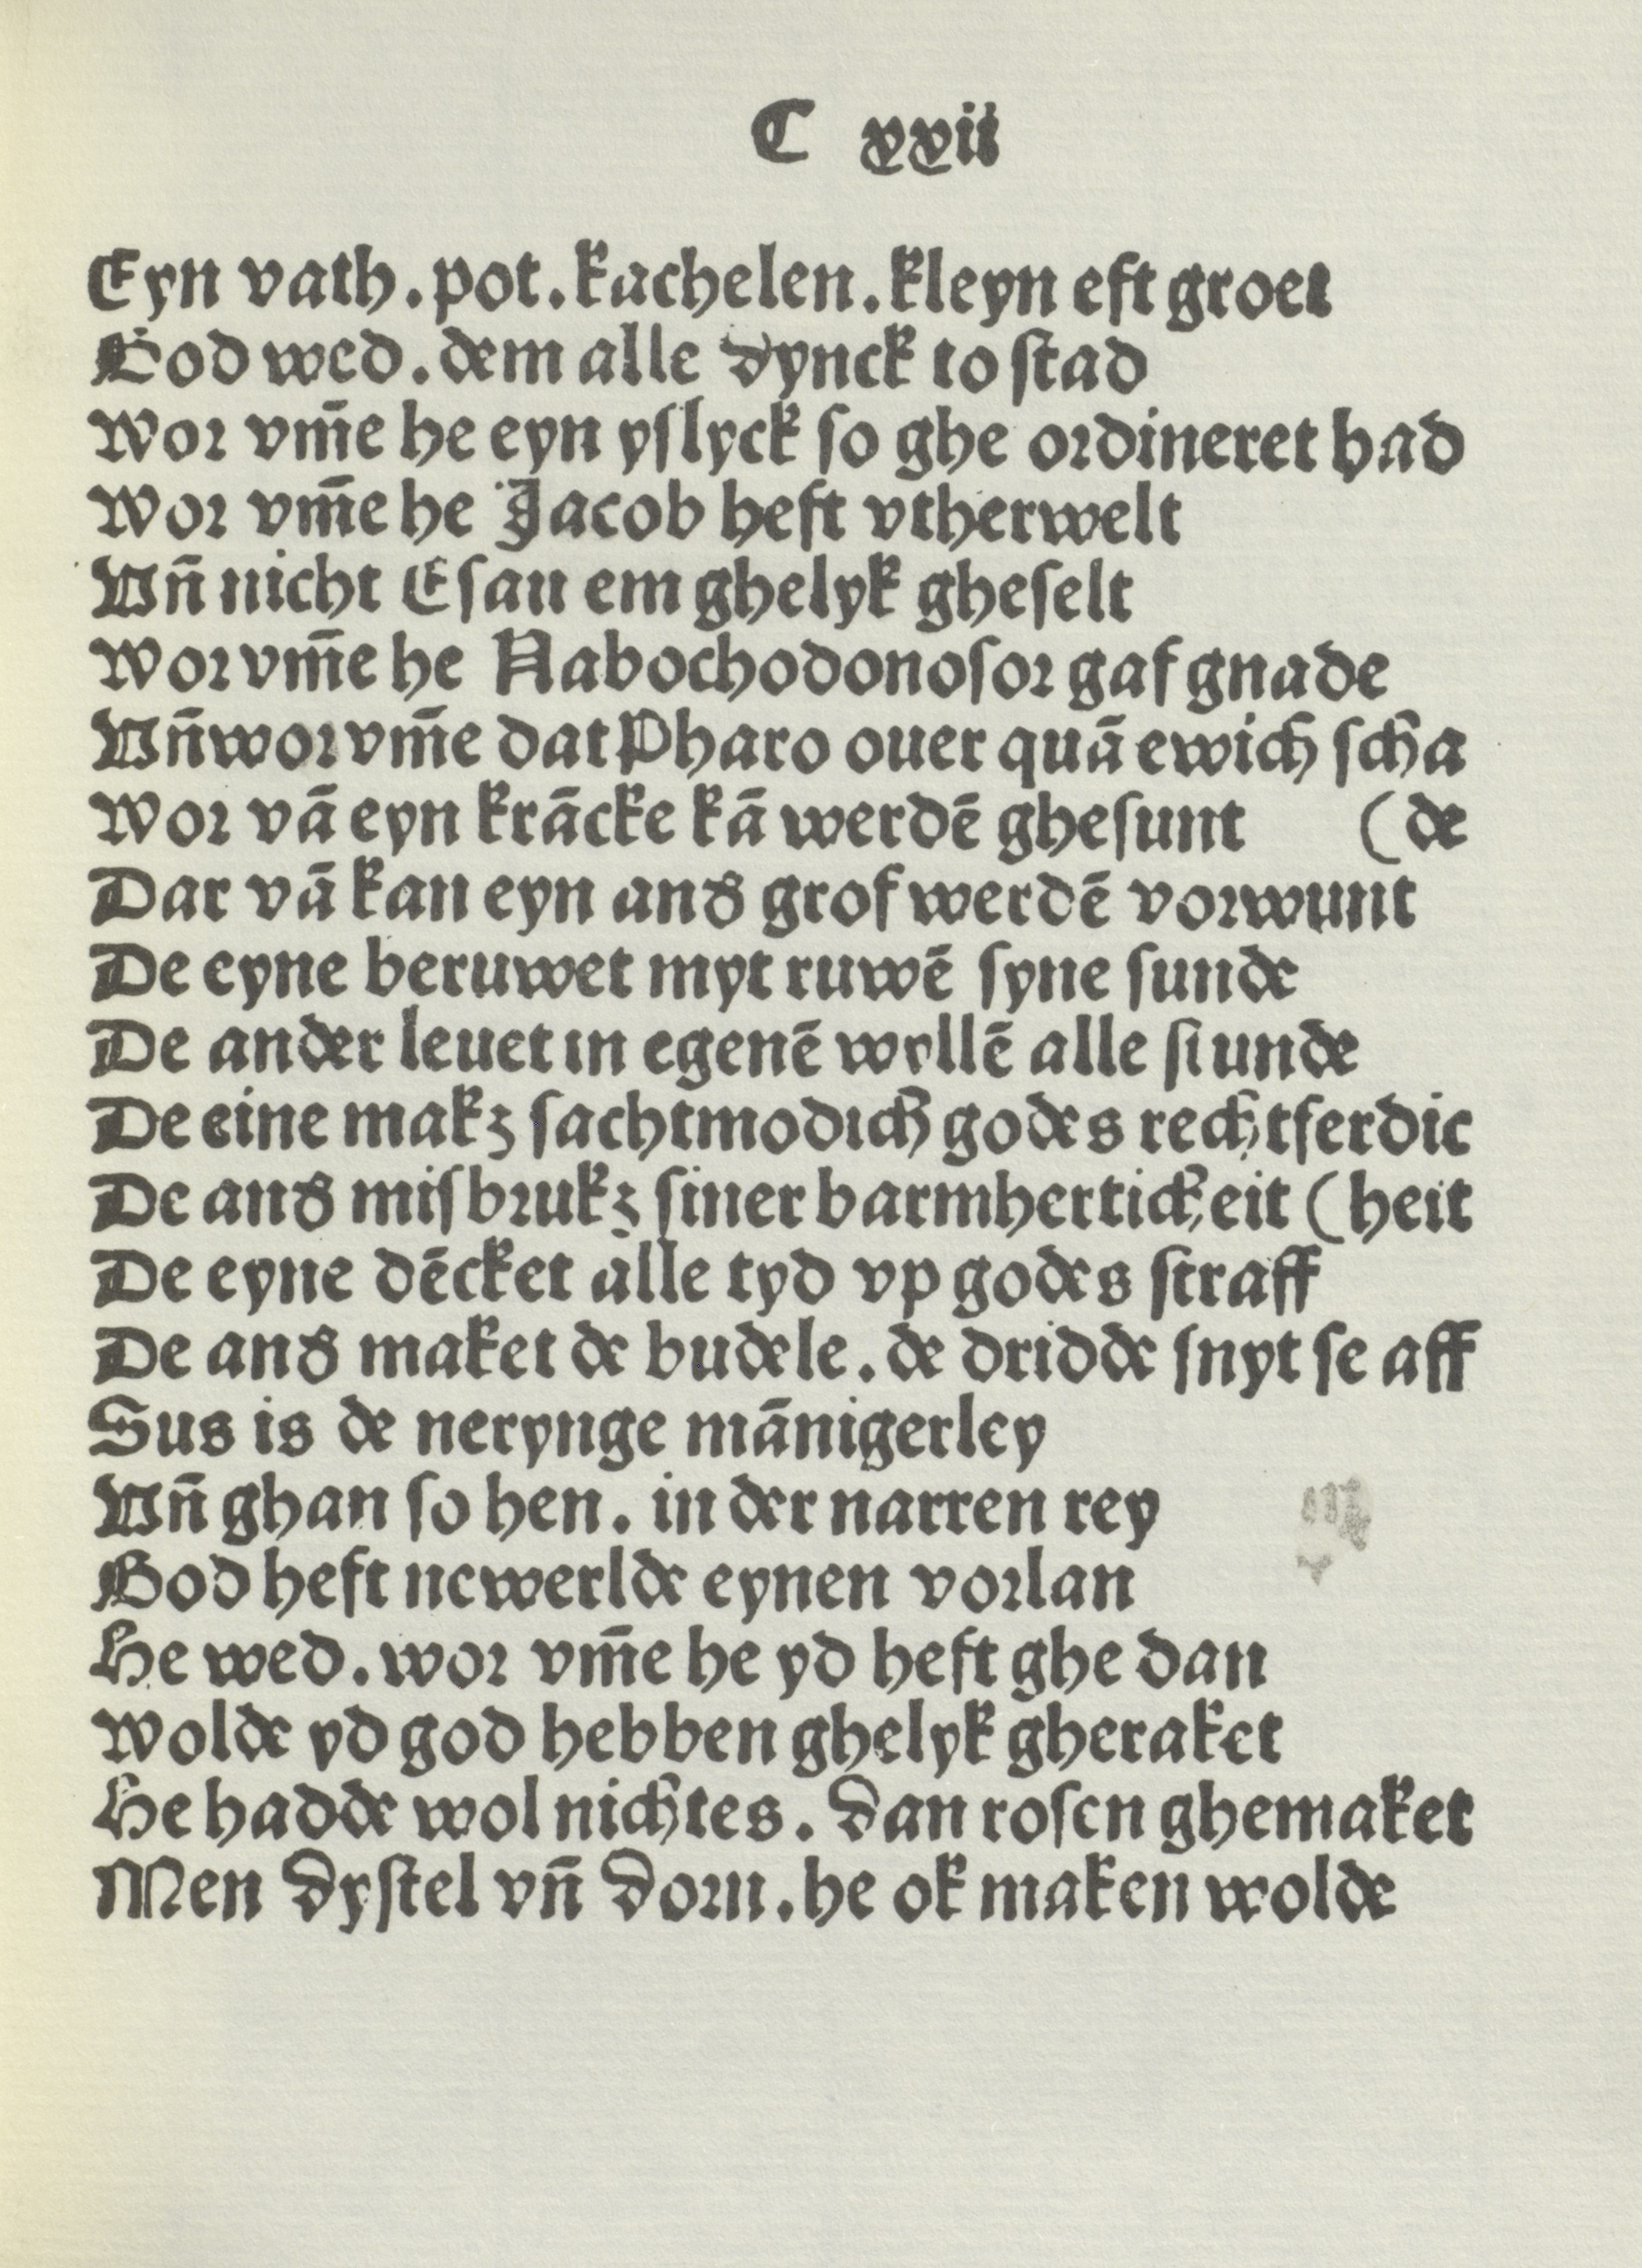 C xxvii
Eyn vath . pot . kachelen . kleyn eft groet
God wed . dem alle dynck to ſtad
Wor vm̄e he eyn yſlyck ſo ghe ordineret had
Wor vm̄e he Jacob heft vtherwelt
Vn̄ nicht Eſau em ghelyk gheſelt
Wor vm̄e he Nabochodonoſor gaf gnade
Vn̄ wor vm̄e dat Pharo ouer quā ewich ſcha
Wor vā eyn krācke kā werdē gheſunt (de
Dar vā kan eyn anď grof werdē vorwunt
De eyne beruwet myt ruwē ſyne ſunde
De ander leuet in egenē wyllē alle ſtunde
De eine makꝫ ſachtmodich godes rechtferdic
De anď miſbrukꝫ ſiner barmhertickeit (heit
De eyne dēcket alle tyd vp godes ſtraff
De anď maket de budele . de dridde ſnyt ſe aff
Sus is de nerynge mānigerley
Vn̄ ghan ſo hen . in der narren rey
God heft newerlde eynen vorlan
He wed . wor vm̄e he yd heft ghe dan
Wolde yd god hebben ghelyk gheraket
He hadde wol nichtes . dan roſen ghemaket
Men dyſtel vn̄ dorn . he ok maken wolde